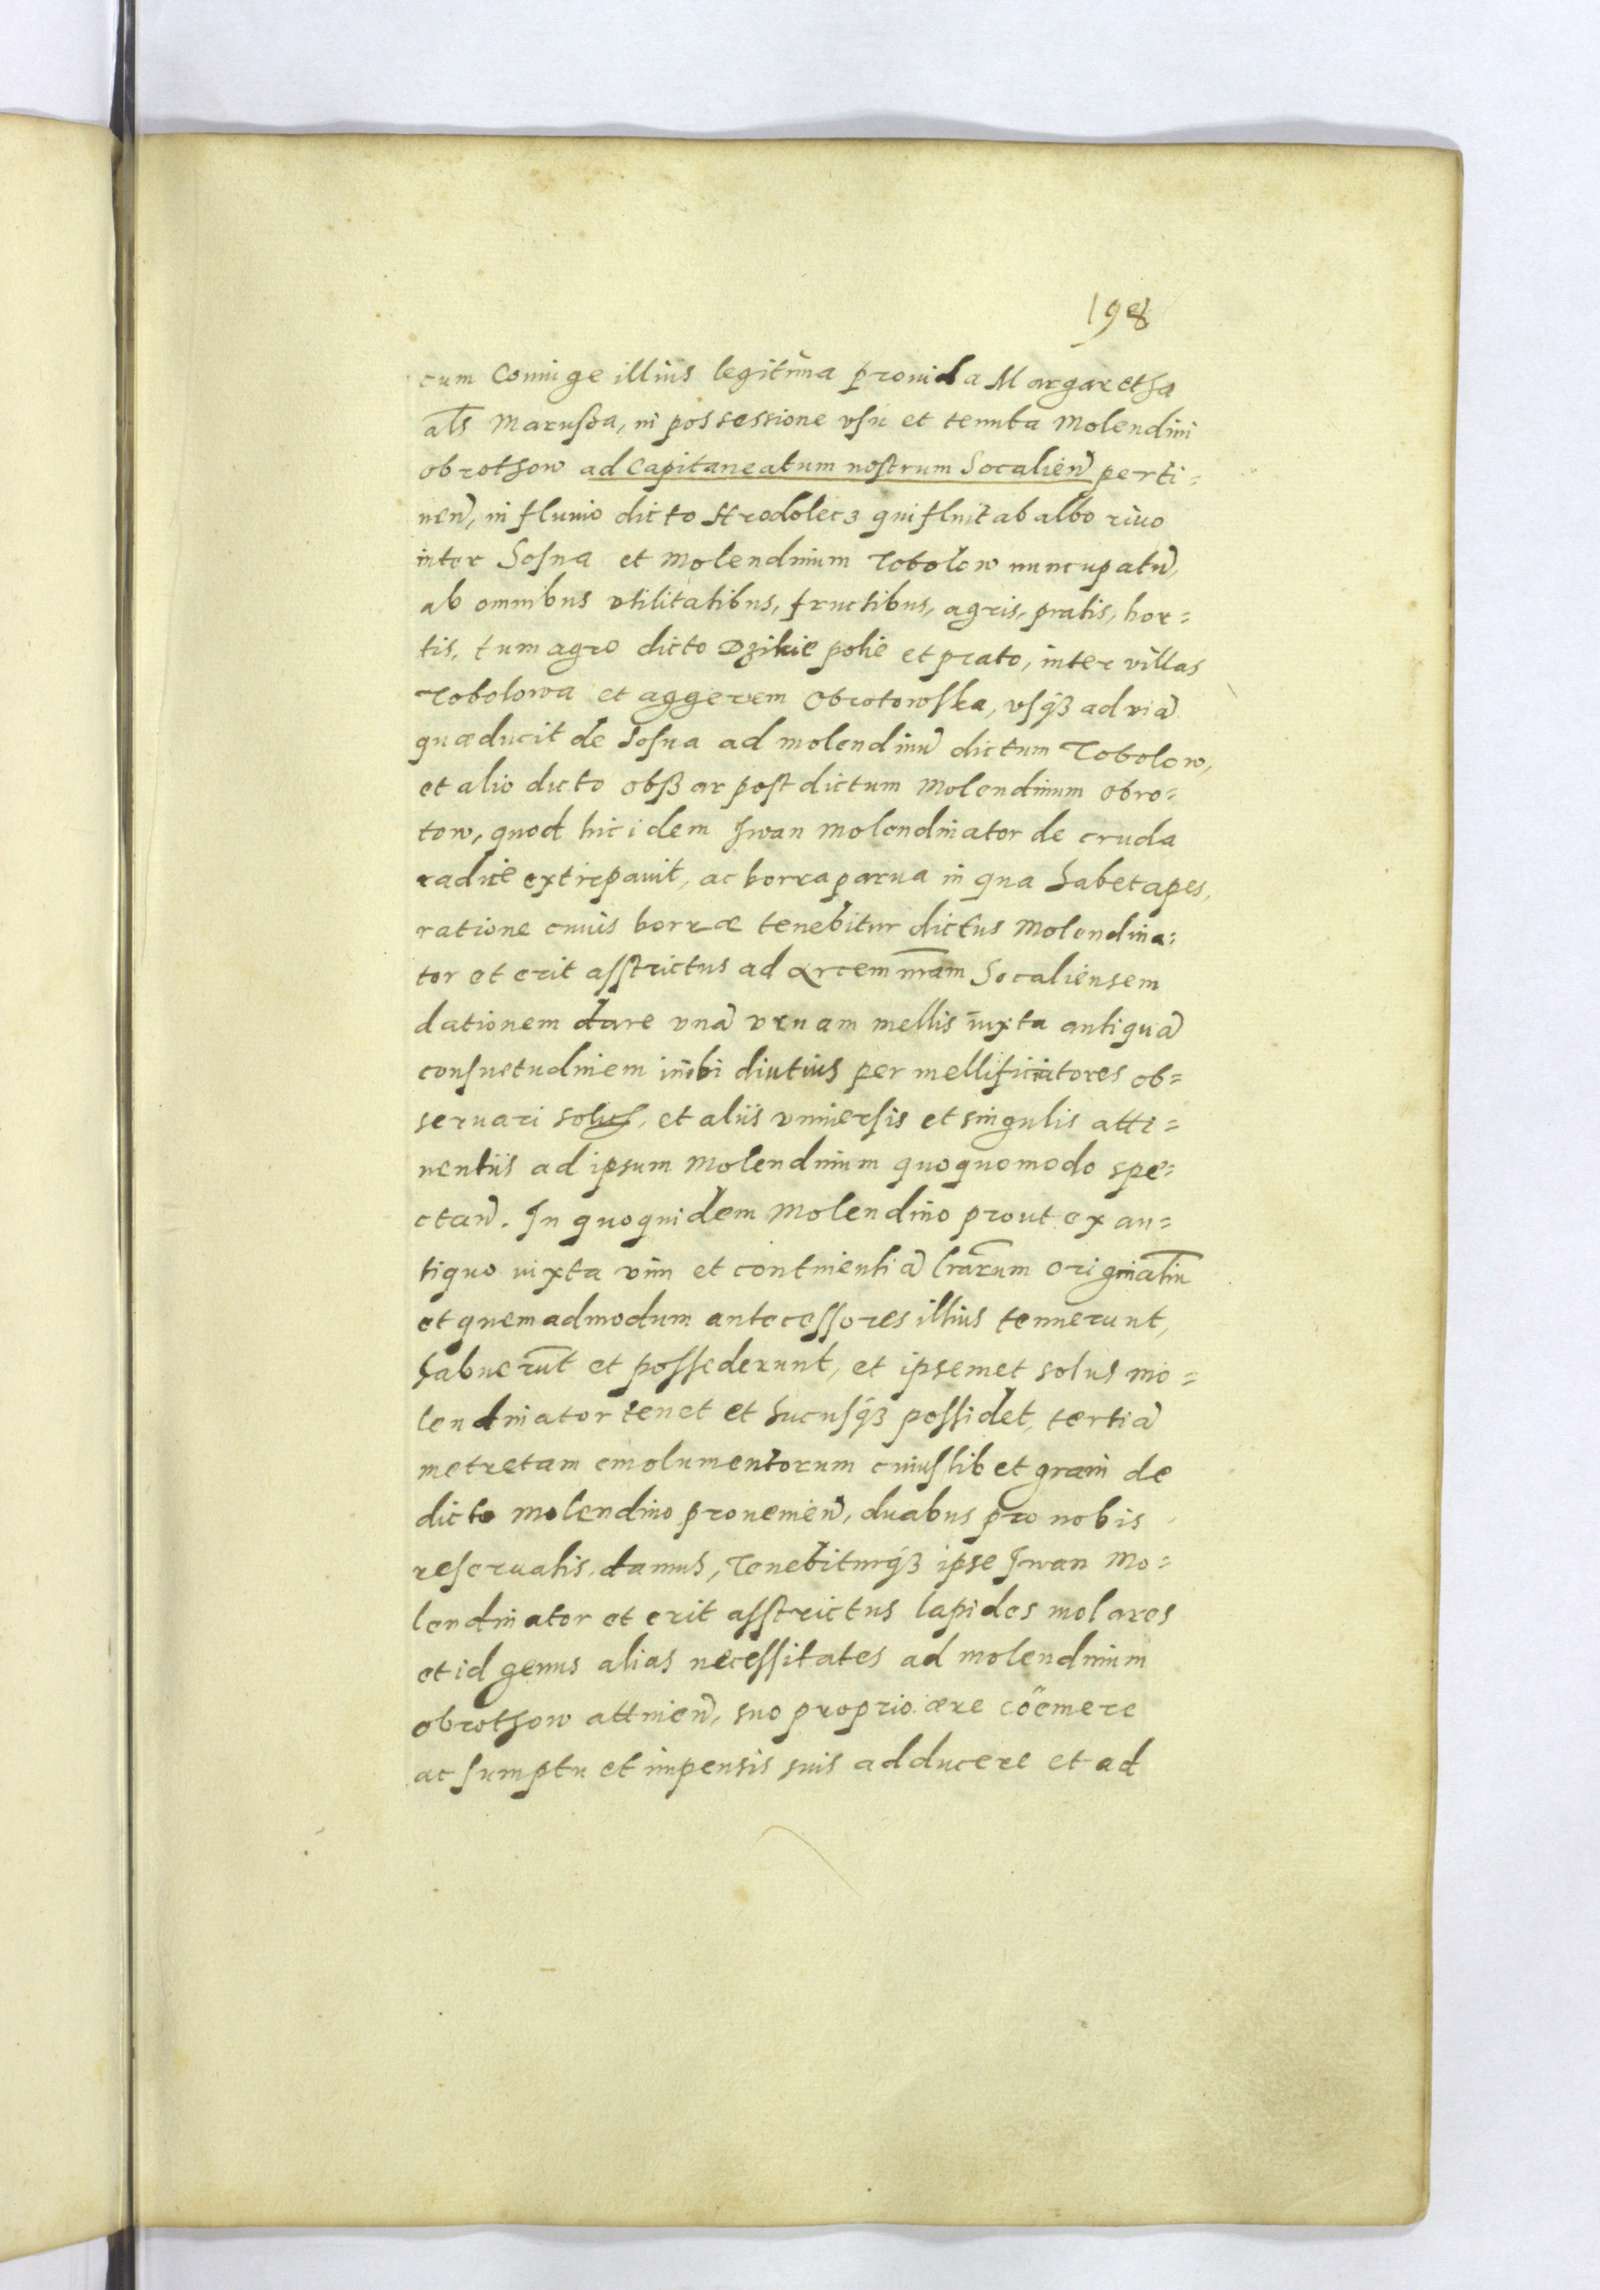 198
cum Coniuge illius legitima prouida Margaretha
als Marußa, in possessione vsu et tenuta Molendini
obrothow ad Capitaneatum nostrum Socalieñ perti=
neñ, in fluuio dicto Hrodolecz qui fluit ab albo riuo
inter Sosna et Molendinum Tobolow nuncupatũ,
ab omnibus vtilitatibus, fructibus, agris, pratis, hor=
tis, tum agro dicto Dzikie polie et prato, inter villas
Tobolowa et aggerem Obrotowska, vsqȝ ad viã
quæ ducit de Sosna ad molendinũ dictum Tobolow,
et alio dicto obßar post dictum Molendinum obro=
tow, quod hic idem Iwan Molendinator de cruda
radice extirpauit, ac borra parua in qua habet apes,
ratione cuius borræ tenebitur dictus Molendina=
tor et erit asstrictus ad Arcem nr̃am Socaliensem
dationem dare vnã vrnam mellis iuxta antiquã
consuetudinem inibi diutius per mellificiatores ob=
seruari , et aliis vniuersis et singulis atti=
nentiis ad ipsum Molendinum quoquomodo spe=
ctañ. In quoquidem Molendino prout ex an=
tiquo iuxta vim et continentiã lr̃arum originaliũ
et quemadmodum antecessores illius tenuerunt,
habuerũt et possederunt, et ipsemet solus mo=
lendinator tenet et hucusqȝ possidet, tertiã
metretam emolumentorum cuiuslibet grani de
dicto Molendino prouenieñ, duabus pro nobis
reseruatis, damus, Tenebiturqȝ ipse Iwan Mo=
lendinator et erit asstrictus lapides molares
et id genus alias necessitates ad molendinum
obrothow attineñ, suo proprio ære coëmere
ac sumptu et impensis suis adducere et ad